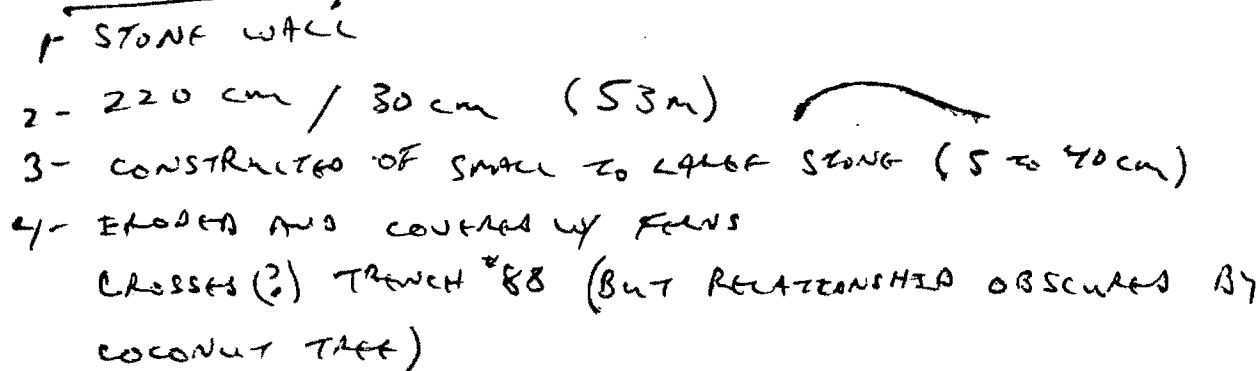 1- STONE WALL
2- 220 cm / 30 cm (53m)
3- CONSTRUCTED OF SMALL TO LARGE STONE (5 TO 40 cm)
4- ERODED AND COVERED W/ FERNS
CROSSES (?) TRENCH #88 (BUT RELATIONSHIP OBSCURED BY
COCONUT TREE)